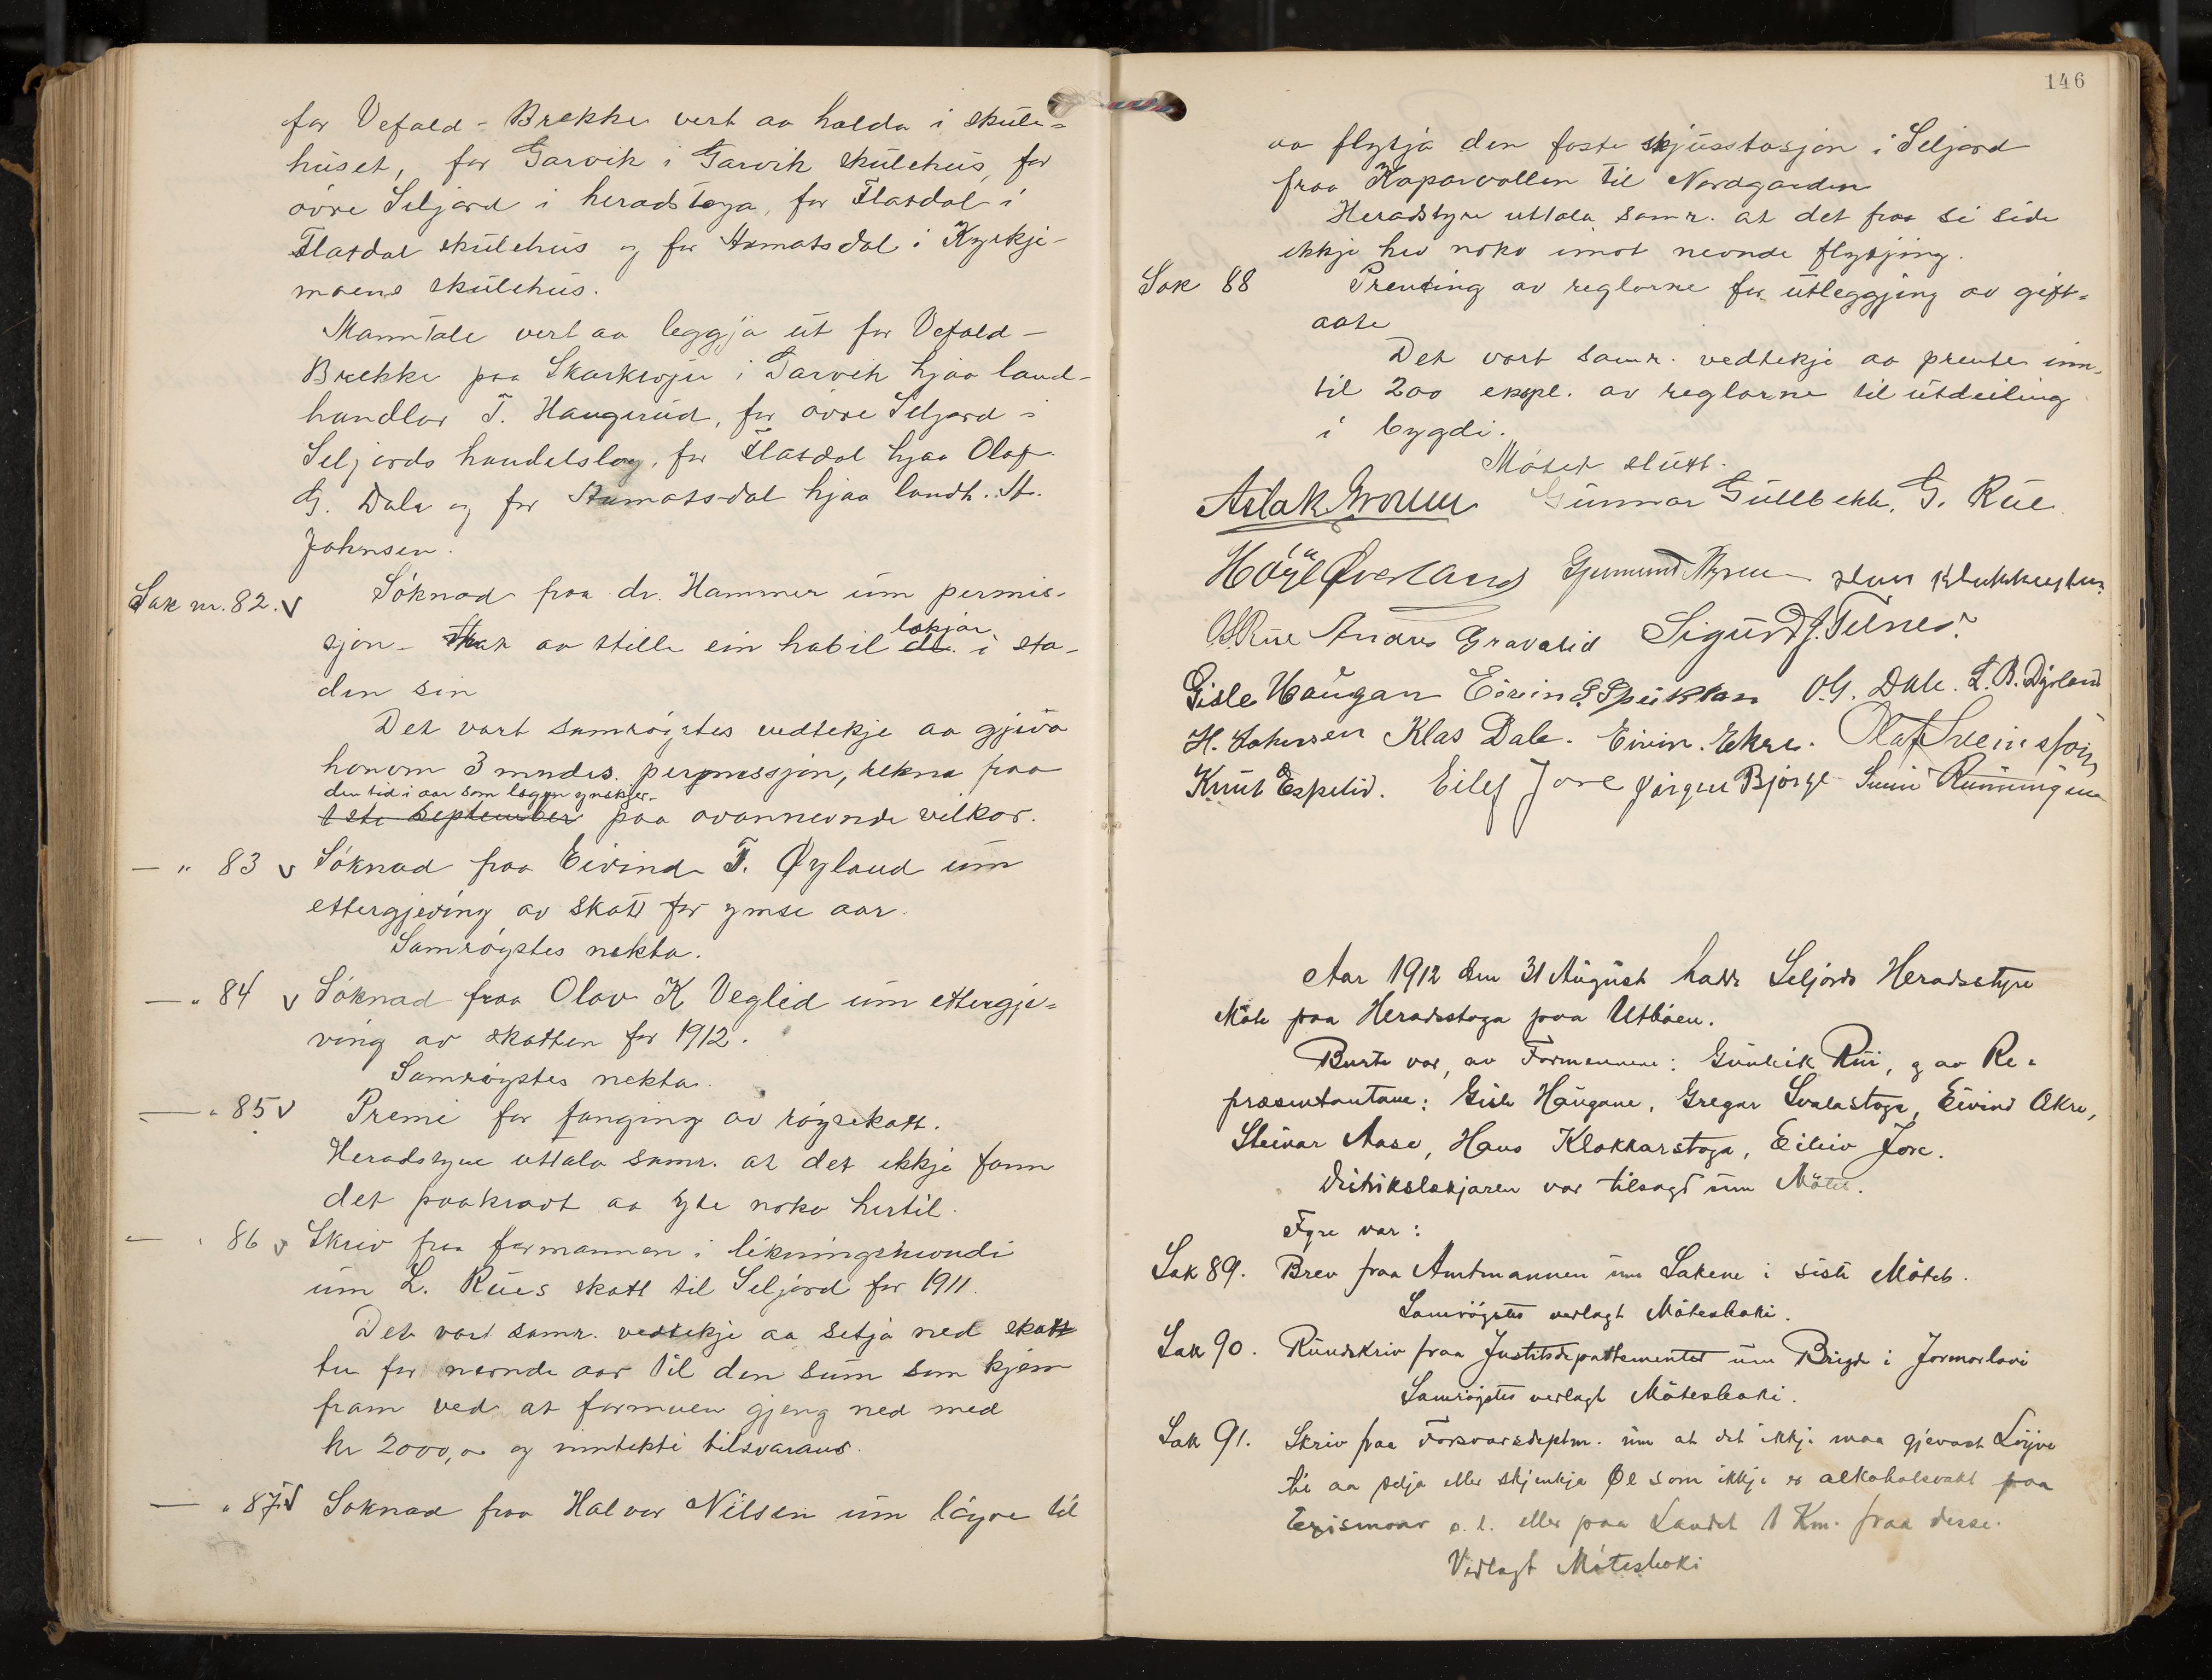 for Vefald - Brekke vert aa halda i skule=
huset, for Garvik i Garvik skulehus, for
övre Seljord i heradstoga, for Flatdal i
Flatdal skulehus og for Aamotsdal i Kyrkje-
moens skulehus.
Manntale vert aa leggja ut for Vefald -
Brekke paa Skarkvoju i Garvik hjaa land-
handlar T. Haugerud, for övre Seljord i
Seljords handelslag, for Flatdal hjaa Olaf
G. Dale og for Aamotsdal hjaa landh. H.
Johnsen.
Sak nr. 82. v Söknad fraa dr. Hammer um permis-
sjon - mot aa stille ein habil dr. lækjar i sta-
den sin
Det vart samröystes vedtekje aa gjeva
honom 3 mndrs. permissjon, rekna fraa
den tid i aar som lægen ynskjer
1ste September paa ovannevnde vilkor.
— " 83 v Söknad fraa Eivind T. Øyland um
ettergjeving av skatt for ymse aar.
Samröystes nekta.
— " 84 v Söknad fraa Olav K Veglid um ettergje=
ving av skatten for 1912.
Samröystes nekta.
— " 85 v Premi for fanging av röysekatt.
Heradstyre uttala samr. at det ikkje fann
det paakravt aa yte noko hertil.
— " 86 v Skriv fraa formannen i likningsnevndi
um L. Rues skatt til Seljord for 1911.
Det vart samr. vedtekje aa setja ned skatt
en for nevnde aar til den sum som kjem
fram ved at formuen gjeng ned med
kr 2000,00 og inntekti tilsvarans.
— " 87 v Söknad fraa Halvor Nilsen um löyve til
146
aa flytja den faste skjusstasjon i Seljord
fraa Kaparvollen til Nordgarden
Heradstyre uttala samr. at det fraa si side
ikkje hev noko imot nevnde flytjing.
Sak 88 Prenting av reglarne for utleggjing av gift=
aate
Det vart samr. vedtekje aa prente inn-
til 200 expl. av reglarne til utdeiling
i bygdi.
Möset slutt.
Aslak Gunnar Gullbekk. G. Rue.
H Øverland Gjermund
O. Rue Andres Gravalid Sigurd J. Telnes.
Gisle Haugan Eivin G. O. G. Dale. L. B. Dyrland
H. Johnsen Klas Dale. Eivin. Ekre. Olaf Sveinsson
Knut Espelid. Eilef Jore Jörgen Björge Svein Runningen
Aar 1912 den 31 August hadde Seljords Heradsstyre
Möte paa Heradsstoga paa Utböen.
Burte var, av Formennene: Gunleik Rui, og av Re=
præsentantane: Gisle Haugane, Gregar Svalastoga, Eivind Akre,
Steinar Aase, Hans Klokkarstoga, Eileiv Jore.
Distrikslækjaren var tilsagd um Mötet.
Fyre var:
Sak 89. Brev fraa Amtmannen um Sakene i siste Mötet.
Samröystes vedlagt Möteboki.
Sak 90. Rundskriv fraa Justitsdepartementet um Brigde i Jormorlovi
Samröystes vedlagt Möteboki.
Sak 91. Skriv fraa Forsvarsdeptm. um at det ikkje maa gjevast Löyve
til aa selja eller skjenkja Øl som ikkje er alkoholsvakt paa
Exismoar o. l. eller paa Landet 1 Km. fraa desse.
Vedlagt Möteboki